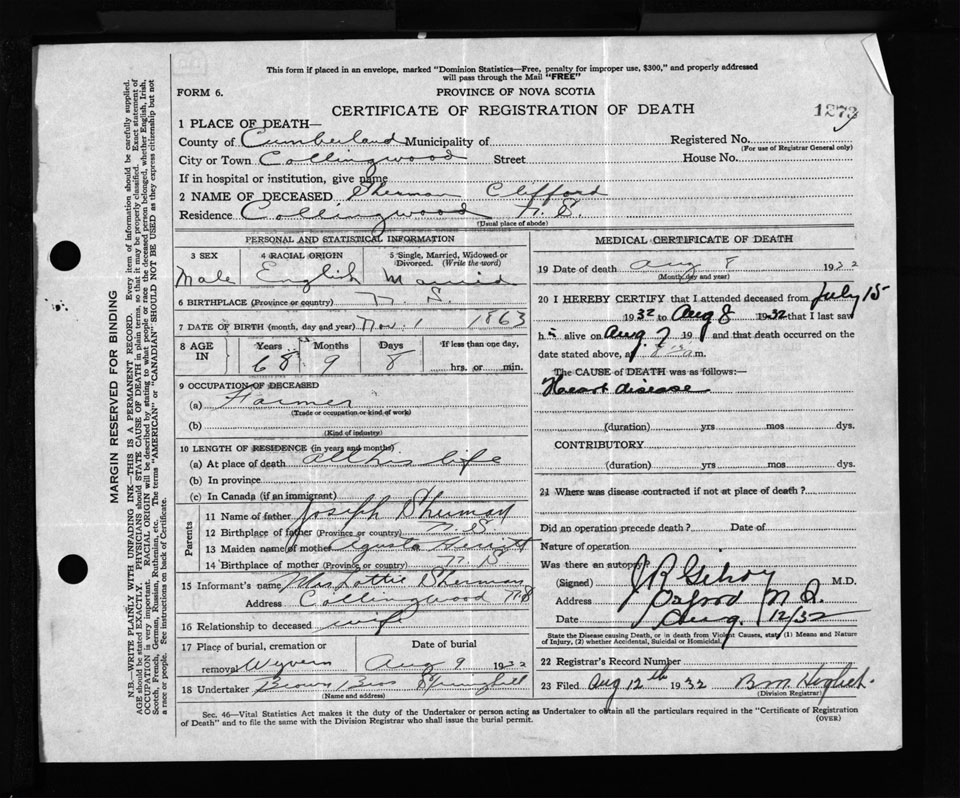 This form if placed in an envelope, marked "Dominion Statistics—Free, penalty for improper use, $300," and properly addressed
will pass through the Mail "FREE"
FORM 6. PROVINCE OF NOVA SCOTIA
CERTIFICATE OF REGISTRATION OF DEATH 1273
1 PLACE OF DEATH—
County of Cumberland Municipality of Registered No.
(For use of Registrar General only)
City or Town Collingwood Street House No.
If in hospital or institution, give name
2 NAME OF DECEASED Sherman Clifford
Residence Collingwood N. S.
(Usual place of abode)
PERSONAL AND STATISTICAL INFORMATION
3 SEX 4 RACIAL ORIGIN 5 Single, Married, Widowed or Divorced. (Write the word)
Male English Married
6 BIRTHPLACE (Province or country) N. S.
7 DATE OF BIRTH (month, day and year) Nov. 1 1863
8 AGE IN Years Months Days If less than one day,
68 9 8 hrs. or min.
9 OCCUPATION OF DECEASED
(a) Farmer
(Trade or occupation or kind of work)
(b)
(Kind of industry)
10 LENGTH OF RESIDENCE (in years and months)
(a) At place of death all his life
(b) In province
(c) In Canada (if an immigrant)
Parents
11 Name of father Joseph Sherman
12 Birthplace of father (Province or country) N. S
13 Maiden name of mother
14 Birthplace of mother (Province or country) N. S.
15 Informant's name Mrs Lottie Sherman
Address Collingwood N S
16 Relationship to deceased wife
17 Place of burial, cremation or Date of burial
removal Wyvern Aug 9 1932
18 Undertaker Brown Bros Springhill
(Name and address)
MEDICAL CERTIFICATE OF DEATH
19 Date of death Aug 8 1932
(Month, day and year)
20 I HEREBY CERTIFY that I attended deceased from July 15
1932 to Aug 8 1932 that I last saw
h alive on Aug. 7 19 and that death occurred on the
date stated above, at m.
The CAUSE of DEATH was as follows:—
Heart disease
(duration) yrs mos dys.
CONTRIBUTORY
(duration) yrs. mos dys.
21 Where was disease contracted if not at place of death?
Did an operation precede death? Date of
Nature of operation
Was there an autopsy?
(Signed) J R Gilroy M.D.
Address Oxford N. S.
Date Aug. 12/32
State the Disease causing Death, or in death from Violent Causes, state (1) Means and Nature
of Injury, (2) whether Accidental, Suicidal or Homicidal.
22 Registrar's Record Number
23 Filed Aug 12th 1932 B. M.
(Division Registrar)
Sec. 46—Vital Statistics Act makes it the duty of the Undertaker or person acting as Undertaker to obtain all the particulars required in the "Certificate of Registration
of Death" and to file the same with the Division Registrar who shall issue the burial permit. (OVER)
MARGIN RESERVED FOR BINDING
N.B.—WRITE PLAINLY WITH UNFADING INK—THIS IS A PERMANENT RECORD. Every item of information should be carefully supplied.
AGE should be stated EXACTLY. PHYSICIANS should STATE CAUSE OF DEATH in plain terms, so that it may be properly classified. Exact statement of
OCCUPATION is very important. RACIAL ORIGIN will be described by stating to what people or race the deceased person belonged, whether English, Irish,
Scotch, French, German, Russian, Ruthenian, etc. The terms "AMERICAN" or "CANADIAN" SHOULD NOT BE USED as they express citizenship but not
a race or people. See instructions on back of Certificate.